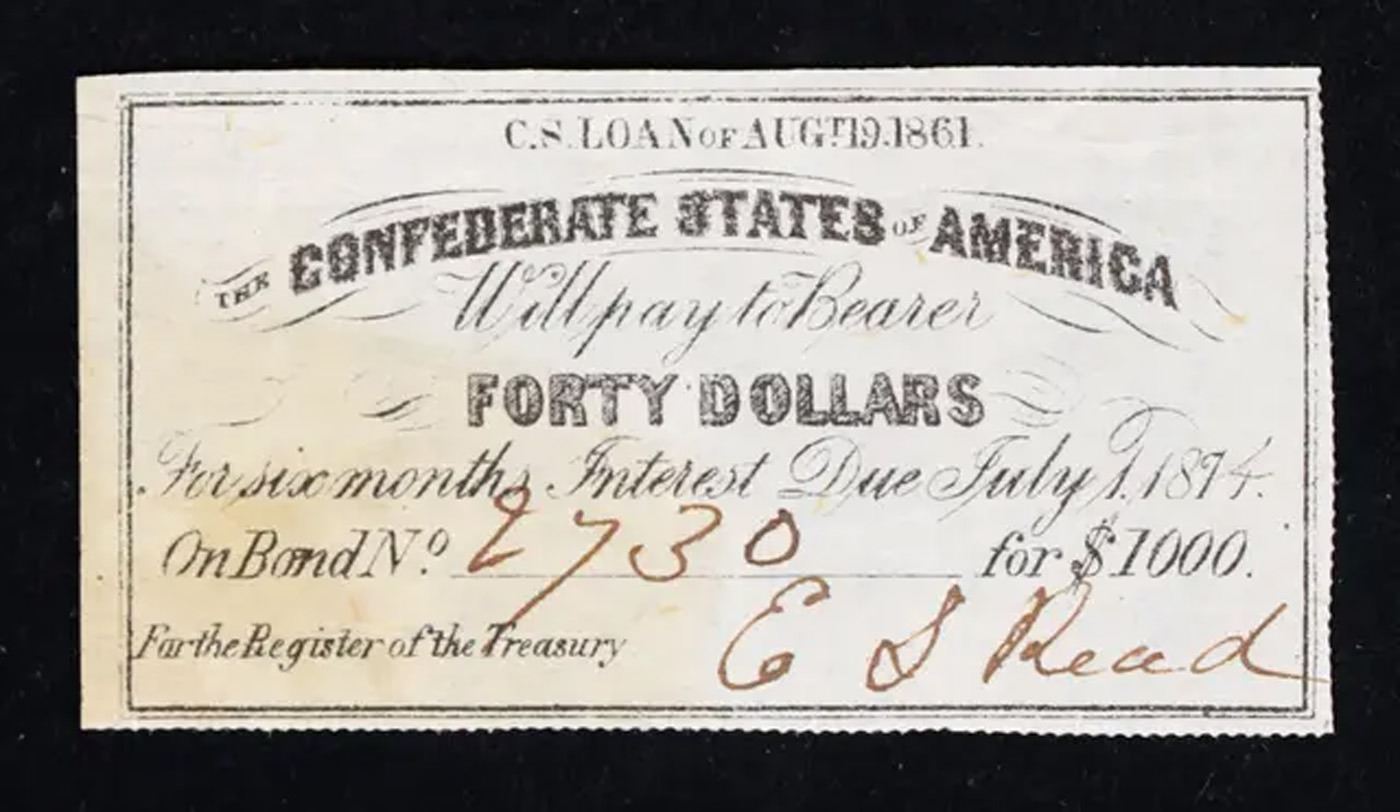 C.S. LOAN OF AUGT. 19. 1861.
THE CONFEDERATE STATES OF AMERICA
Will pay to Bearer
FORTY DOLLARS
For six months Interest Due July 1, 1874.
On Bond No. 2730 for $1000.
For the Register of the Treasury E S Read